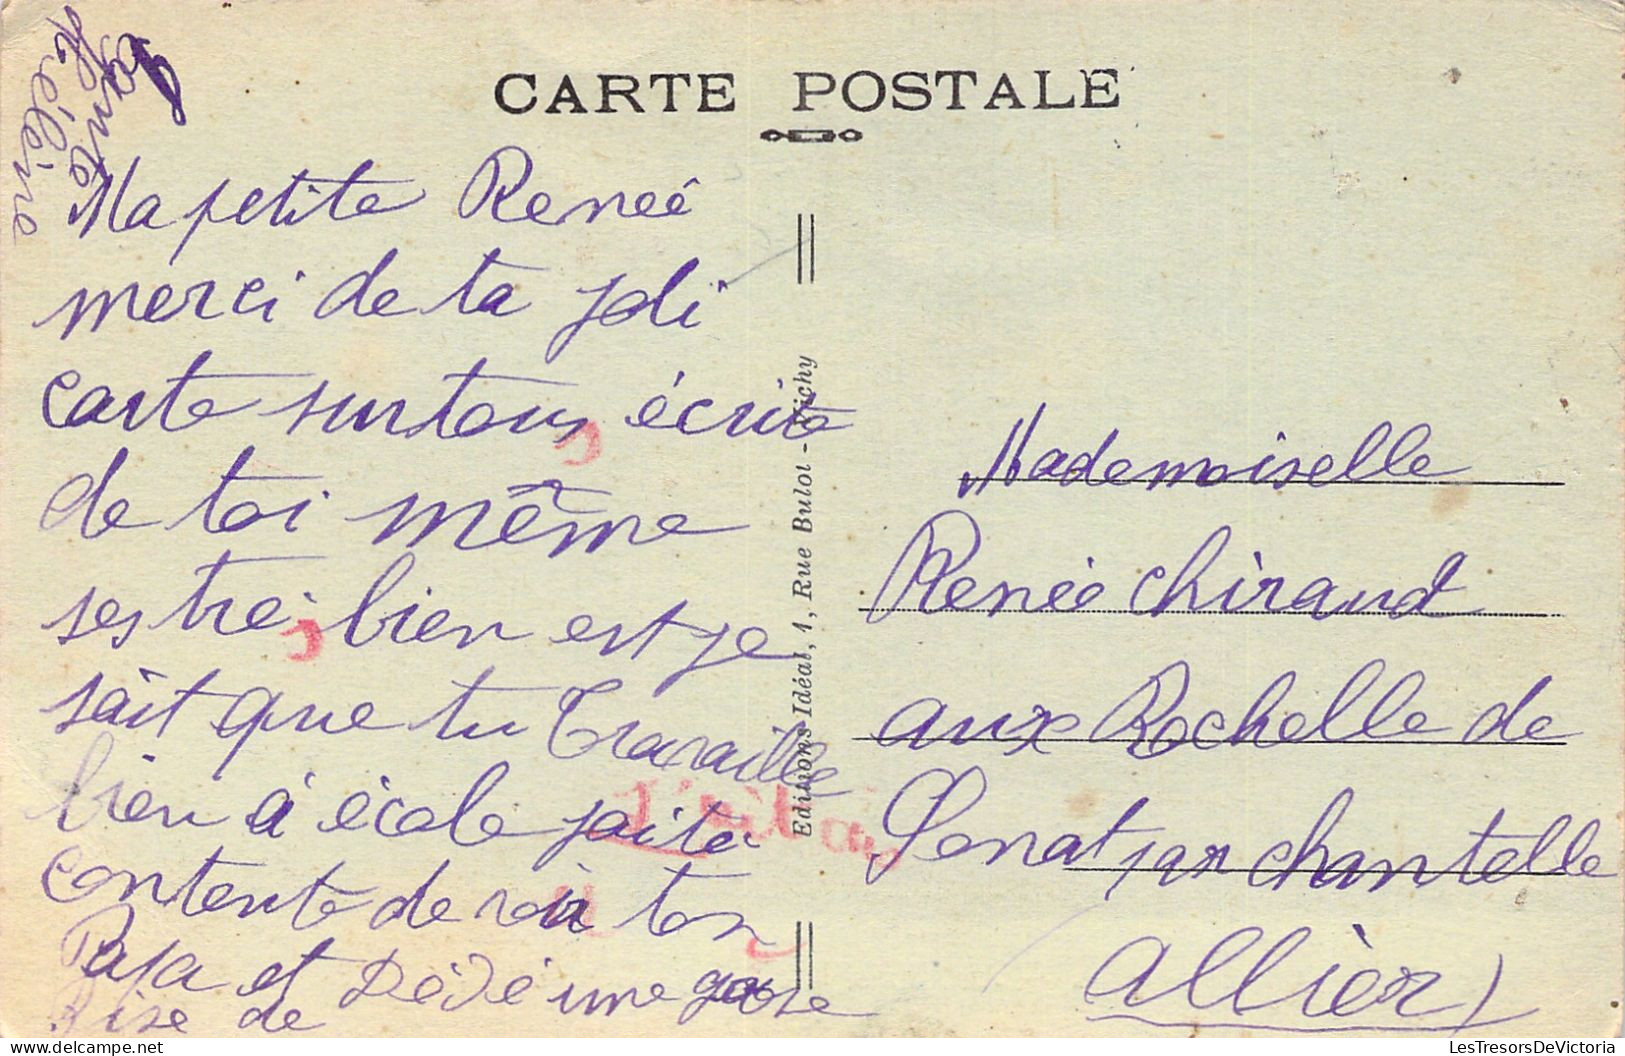 CARTE POSTALE
Ma petite Reneé
merci de ta joli
carte surtous écrite
de toi même
ses trés bien est je
sait que tu travaille
bien à école jaité
contente de voir ton
Papa et Dédé une grosse
Bise de
Hélène
Editions Idéal, 1, Rue Bulot - Vichy
Mademoiselle
Renée Chiraud
aux Rochelle de
Senat par Chantelle
Allièr
LesTresorsDeVictoria